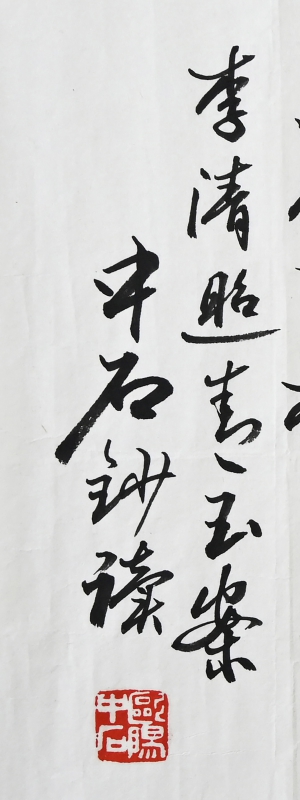 李清照青玉案
中石鈔讀
歐陽
中石